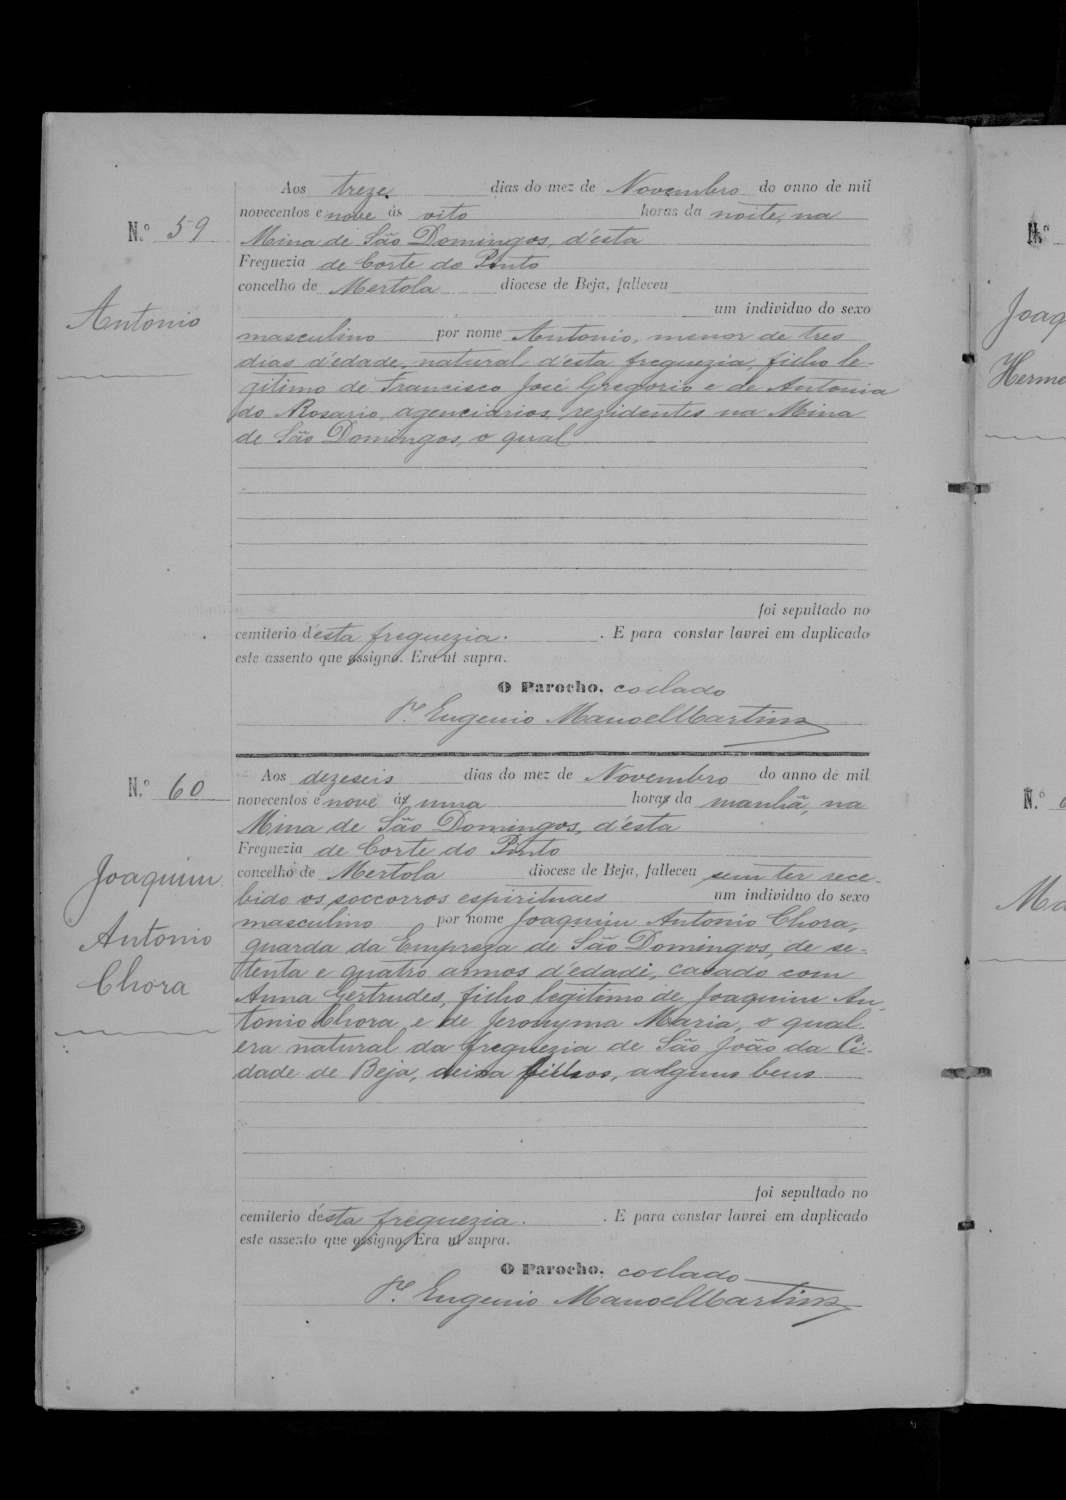 N.º 59
Antonio
Aos treze dias do mez de Novembro do anno de mil
novecentos e nove ás oito horas da noite, na
Mina de São Domingos, d'ésta
Freguezia de Corte do Pinto
concelho de Mertola diocese de Beja, falleceu
um individuo do sexo
masculino por nome Antonio, menor de tres
dias d'édade, natural d'ésta freguezia, filho le-
gitimo de Francisco José Gregorio e de Antonia
do Rosario, agenciarios, rezidentes na Mina
de São Domingos, o qual
foi sepultado no
cemiterio d'ésta freguezia. E para constar lavrei em duplicado
este assento que assigno. Era ut supra.
O Parocho, collado
P.e Eugenio Manoel Martins
N.º 60
Joaquim
Antonio
Chora
Aos dezeseis dias do mez de Novembro do anno de mil
novecentos e nove ás uma horas da manhã, na
Mina de São Domingos, d'ésta
Freguezia de Corte do Pinto
concelho de Mertola diocese de Beja, falleceu sem ter rece-
bido os soccorros espirituaes um individuo do sexo
masculino por nome Joaquim Antonio Chora,
guarda da Empreza de São Domingos, de se-
tenta e quatro annos d'édade, casado com
Anna Gertrudes, filho legitimo de Joaquim An-
tonio Chora e de Jeronyma Maria, o qual
era natural da freguezia de São João da Ci-
dade de Beja, deixa filhos, alguns bens
foi sepultado no
cemiterio d'ésta freguezia. E para constar lavrei em duplicado
este assento que assigno. Era ut supra.
O Parocho, collado
P.e Eugenio Manoel Martins
N.º
Joaq
Herme
N.º 6
Ma